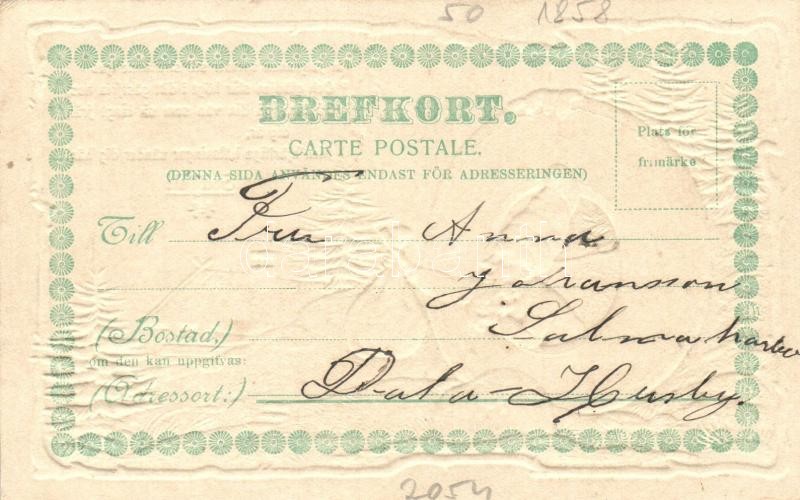 50 1858
BREFKORT.
CARTE POSTALE.
(DENNA SIDA ANVÄNDES ENDAST FÖR ADRESSERINGEN)
Plats för
frimärke
Till Fru Anna
Johansson
(Bostad,)
om den kan uppgifvas:
(Adressort:) Dala-Husby.
2054